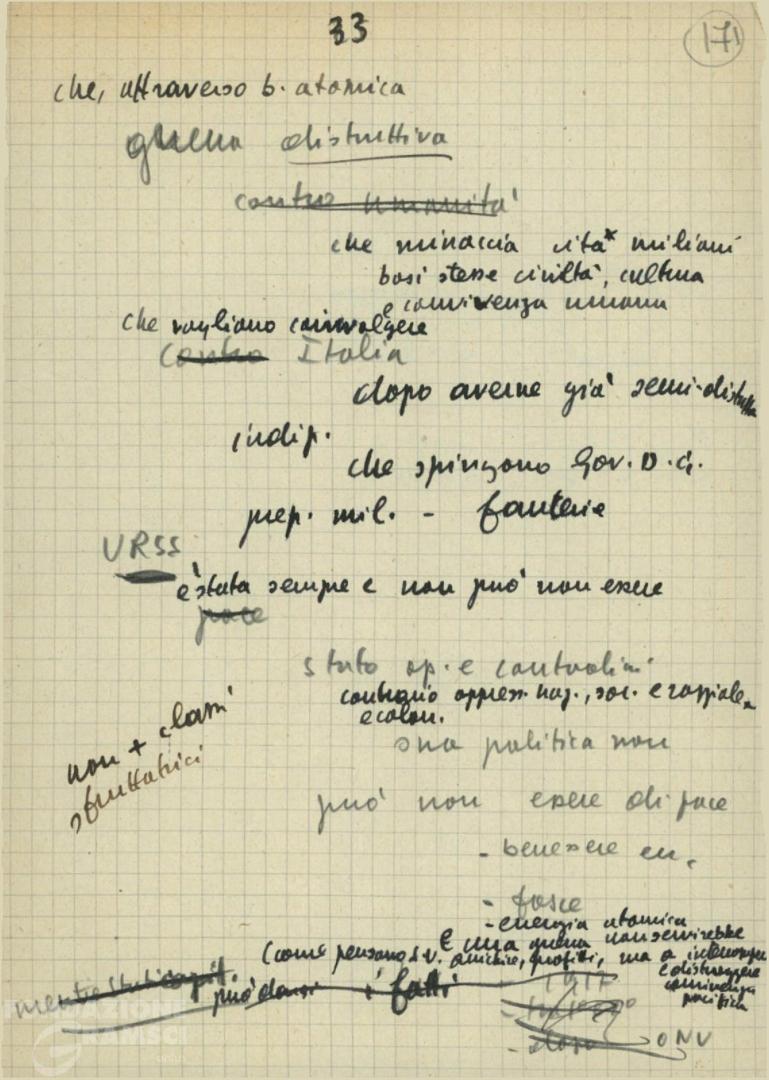 33
171
che, attraverso b. atomica
guerra distruttiva
contro umanità
che minaccia vita* milioni
basi stesse civiltà, cultura
e convivenza umana
che vogliono coinvolgere
contro Italia
dopo averne già semi-distrutta
indip.
che spingono Gov. D.C.
prep. mil. - fanterie
URSS
è stata sempre e non può non essere
pace
stato op. e contadini
contrario oppress. naz., soc. e razziale
e colon.
non + classi
sfruttatrici
sua politica non
può non essere di pace
- benessere
-
- energia atomica
E una guerra non servirebbe
(come pensano profitti, ma a interrompere
e distruggere
convivenza
pacifica
può darsi i fatti - 1917
- dopo
ONU
FONDAZIONE
GRAMSCI